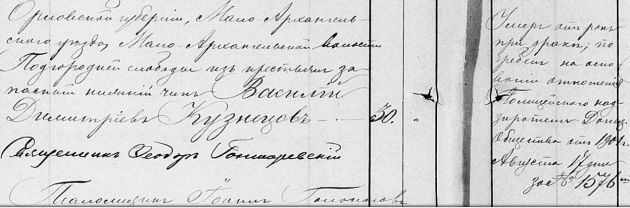 Орловской губернiи, Мало-Архангель-
скаго уѣзда, Мало-Архангельской волости
Подгородней слободы изъ крестьянъ за-
пасный нижнiй чинъ Василiй
Димитрiевъ Кузнецовъ 30. "
Священникъ Ѳеодоръ Гончаревскiй
Псаломщикъ Iоаннъ
Умеръ отъ ранъ
при дракѣ; по
гребенъ на осно
ванiи отношенiя
Полицейскаго над
зирателя Донец.
Общества отъ 1901 г.
Августа 17 дня
за № 1576